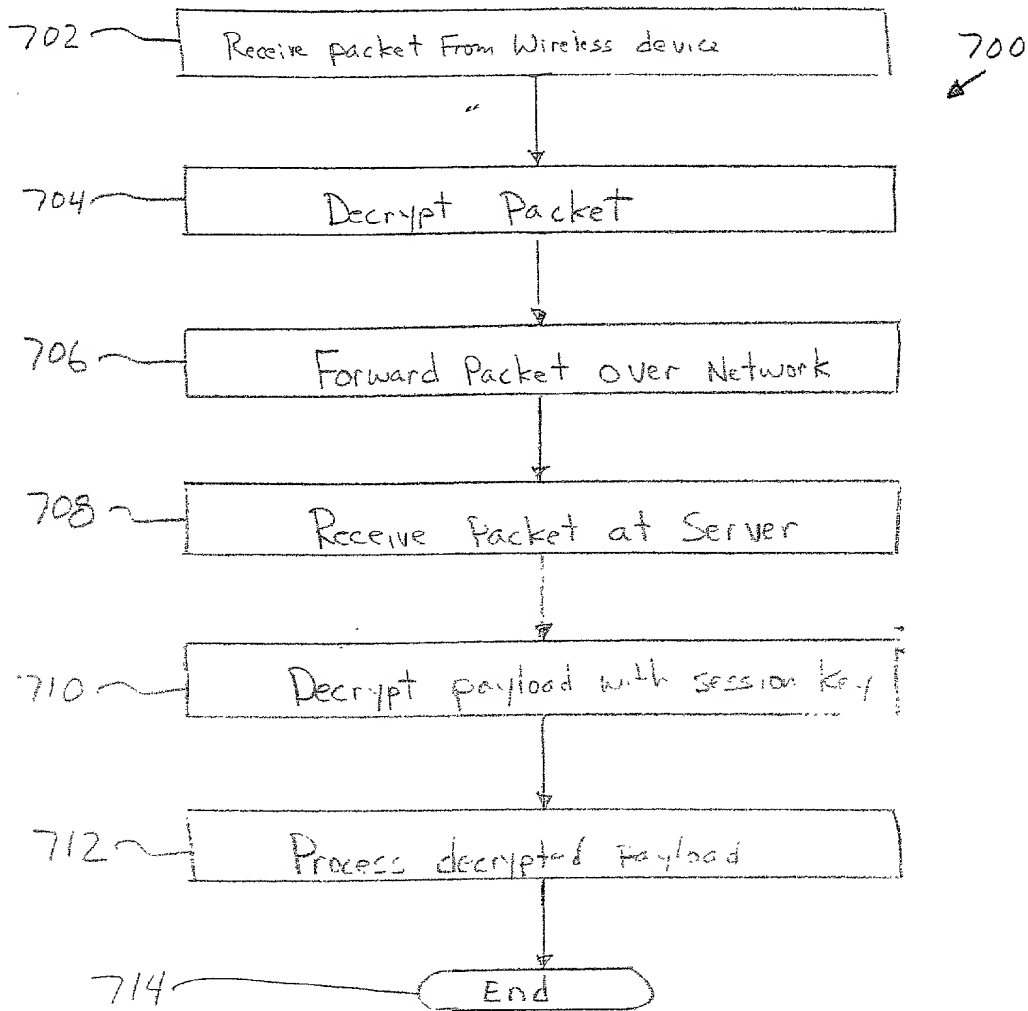 702 Receive packet From Wireless device
700
704 Decrypt Packet
706 Forward Packet over Network
708 Receive Packet at Server
710 Decrypt payload with session key
712 Process decrypted Payload
714 End